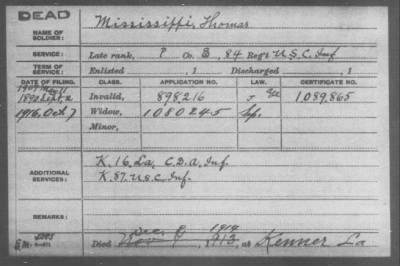 DEAD
NAME OF SOLDIER: Mississippi, Thomas
SERVICE: Late rank, P Co. B, 84 Reg't U.S.C. Inf
TERM OF SERVICE: Enlisted , 1 Discharged , 1
DATE OF FILING. CLASS. APPLICATION NO. LAW. CERTIFICATE NO.
1907 May 11
1890 Sept. 2 Invalid, 898,216 J 1,089,865
1916, Oct. 7 Widow, 1080245
Minor,
ADDITIONAL SERVICES: K. 16, La, C.D.A. Inf.
K. 87. U.S.C. Inf.
REMARKS:
Dec. 1914
Died Nov. 9, 1913, at Kenner La